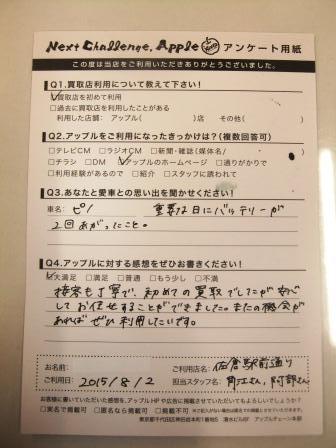 Next Challenge. Apple アンケート用紙
この度は当店をご利用いただきありがとうございました。
Q1.買取店利用について教えて下さい!
☑買取店を初めて利用
□過去に買取店を利用したことがある
利用した店舗: アップル( )店 その他( )
Q2.アップルをご利用になったきっかけは?(複数回答可)
□テレビCM □ラジオCM □新聞・雑誌(媒体名/ )
□チラシ □DM ☑アップルのホームページ □通りがかりで
□利用経験があるので □紹介 □スタッフに誘われて
Q3.あなたと愛車との思い出を聞かせください!
車名: ピノ 重要な日にバッテリーが
2回あがったこと。
Q4.アップルに対する感想をぜひお書きください!
☑大満足 □満足 □普通 □もう少し □不満
接客も丁寧で、初めての買取でしたが安心
してお任せすることができました。またの機会が
あればぜひ利用したいです。
お名前:
ご利用店名: 佐倉駅前通り
ご利用日: 2015/8/2
担当スタッフ名: 阿部さん
お客様に書いていただいた感想を、アップルHPや広告に掲載させていただいてもよろしいでしょうか?
□実名で掲載可 □匿名なら掲載可 □掲載不可